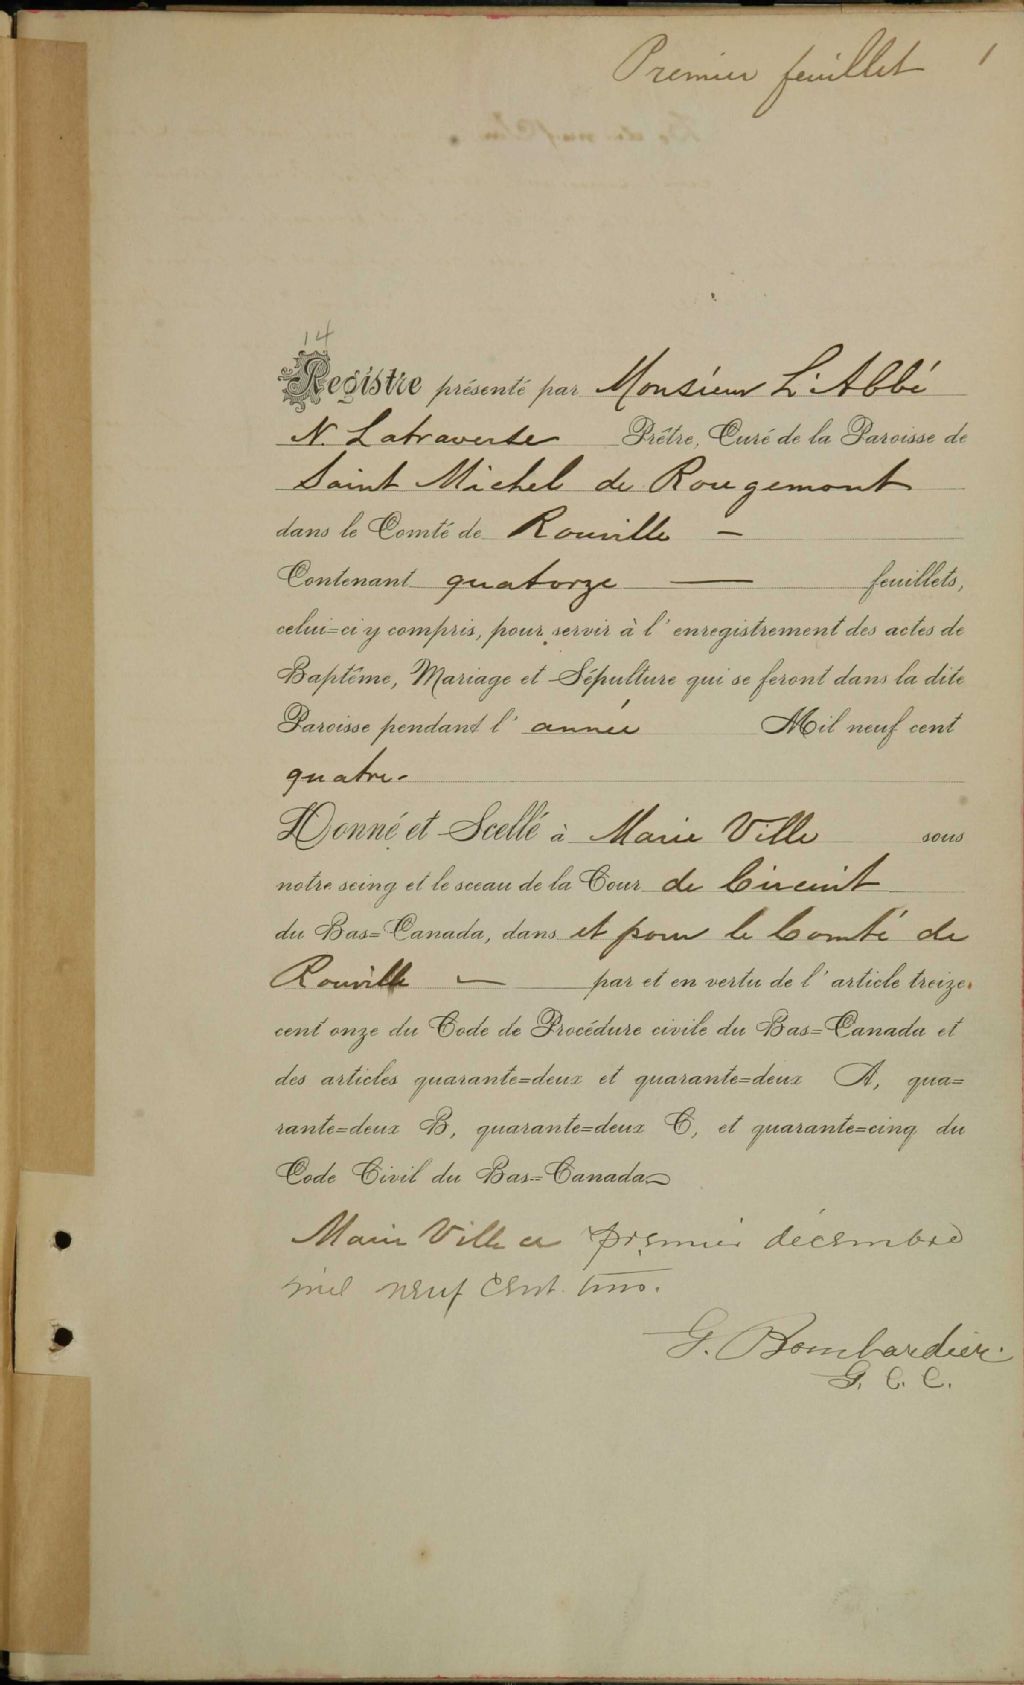 Premier feuillet 1
14
Registre présenté par Monsieur L'Abbé
N. Latraverse Prêtre, Curé de la Paroisse de
Saint Michel de Rougemont
dans le Comté de Rouville —
Contenant quatorze — feuillets,
celui=ci y compris, pour servir à l'enregistrement des actes de
Baptême, Mariage et Sépulture qui se feront dans la dite
Paroisse pendant l'année Mil neuf cent
quatre.
Donné et Scellé à Marie Ville sous
notre seing et le sceau de la Cour de Circuit
du Bas=Canada, dans et pour le Comté de
Rouville — par et en vertu de l'article treize
cent onze du Code de Procédure civile du Bas=Canada et
des articles quarante=deux et quarante=deux A, qua=
rante=deux B, quarante=deux C, et quarante=cinq du
Code Civil du Bas=Canada
Marie Ville ce premier décembre
mil neuf cent trois.
G. Bombardier
G. C. C.